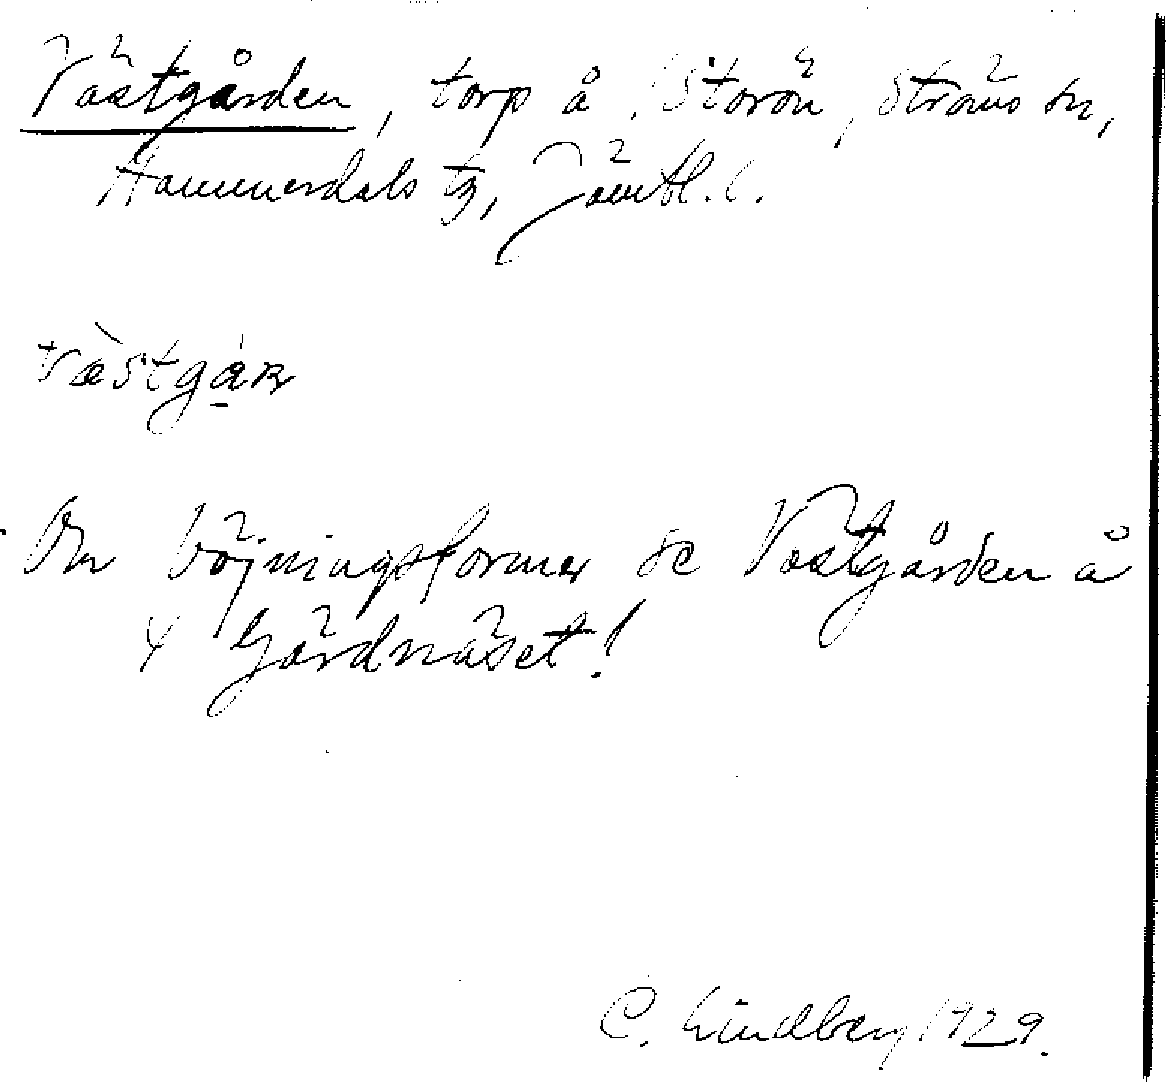 Västgården, torp å Storön, Ströms sn,
Hammerdals tg, Jämtl. l.
væ̀stgáɳ
Om böjningsformer se Västgården å
Gårdnäset!
C. Lindberg 1929.